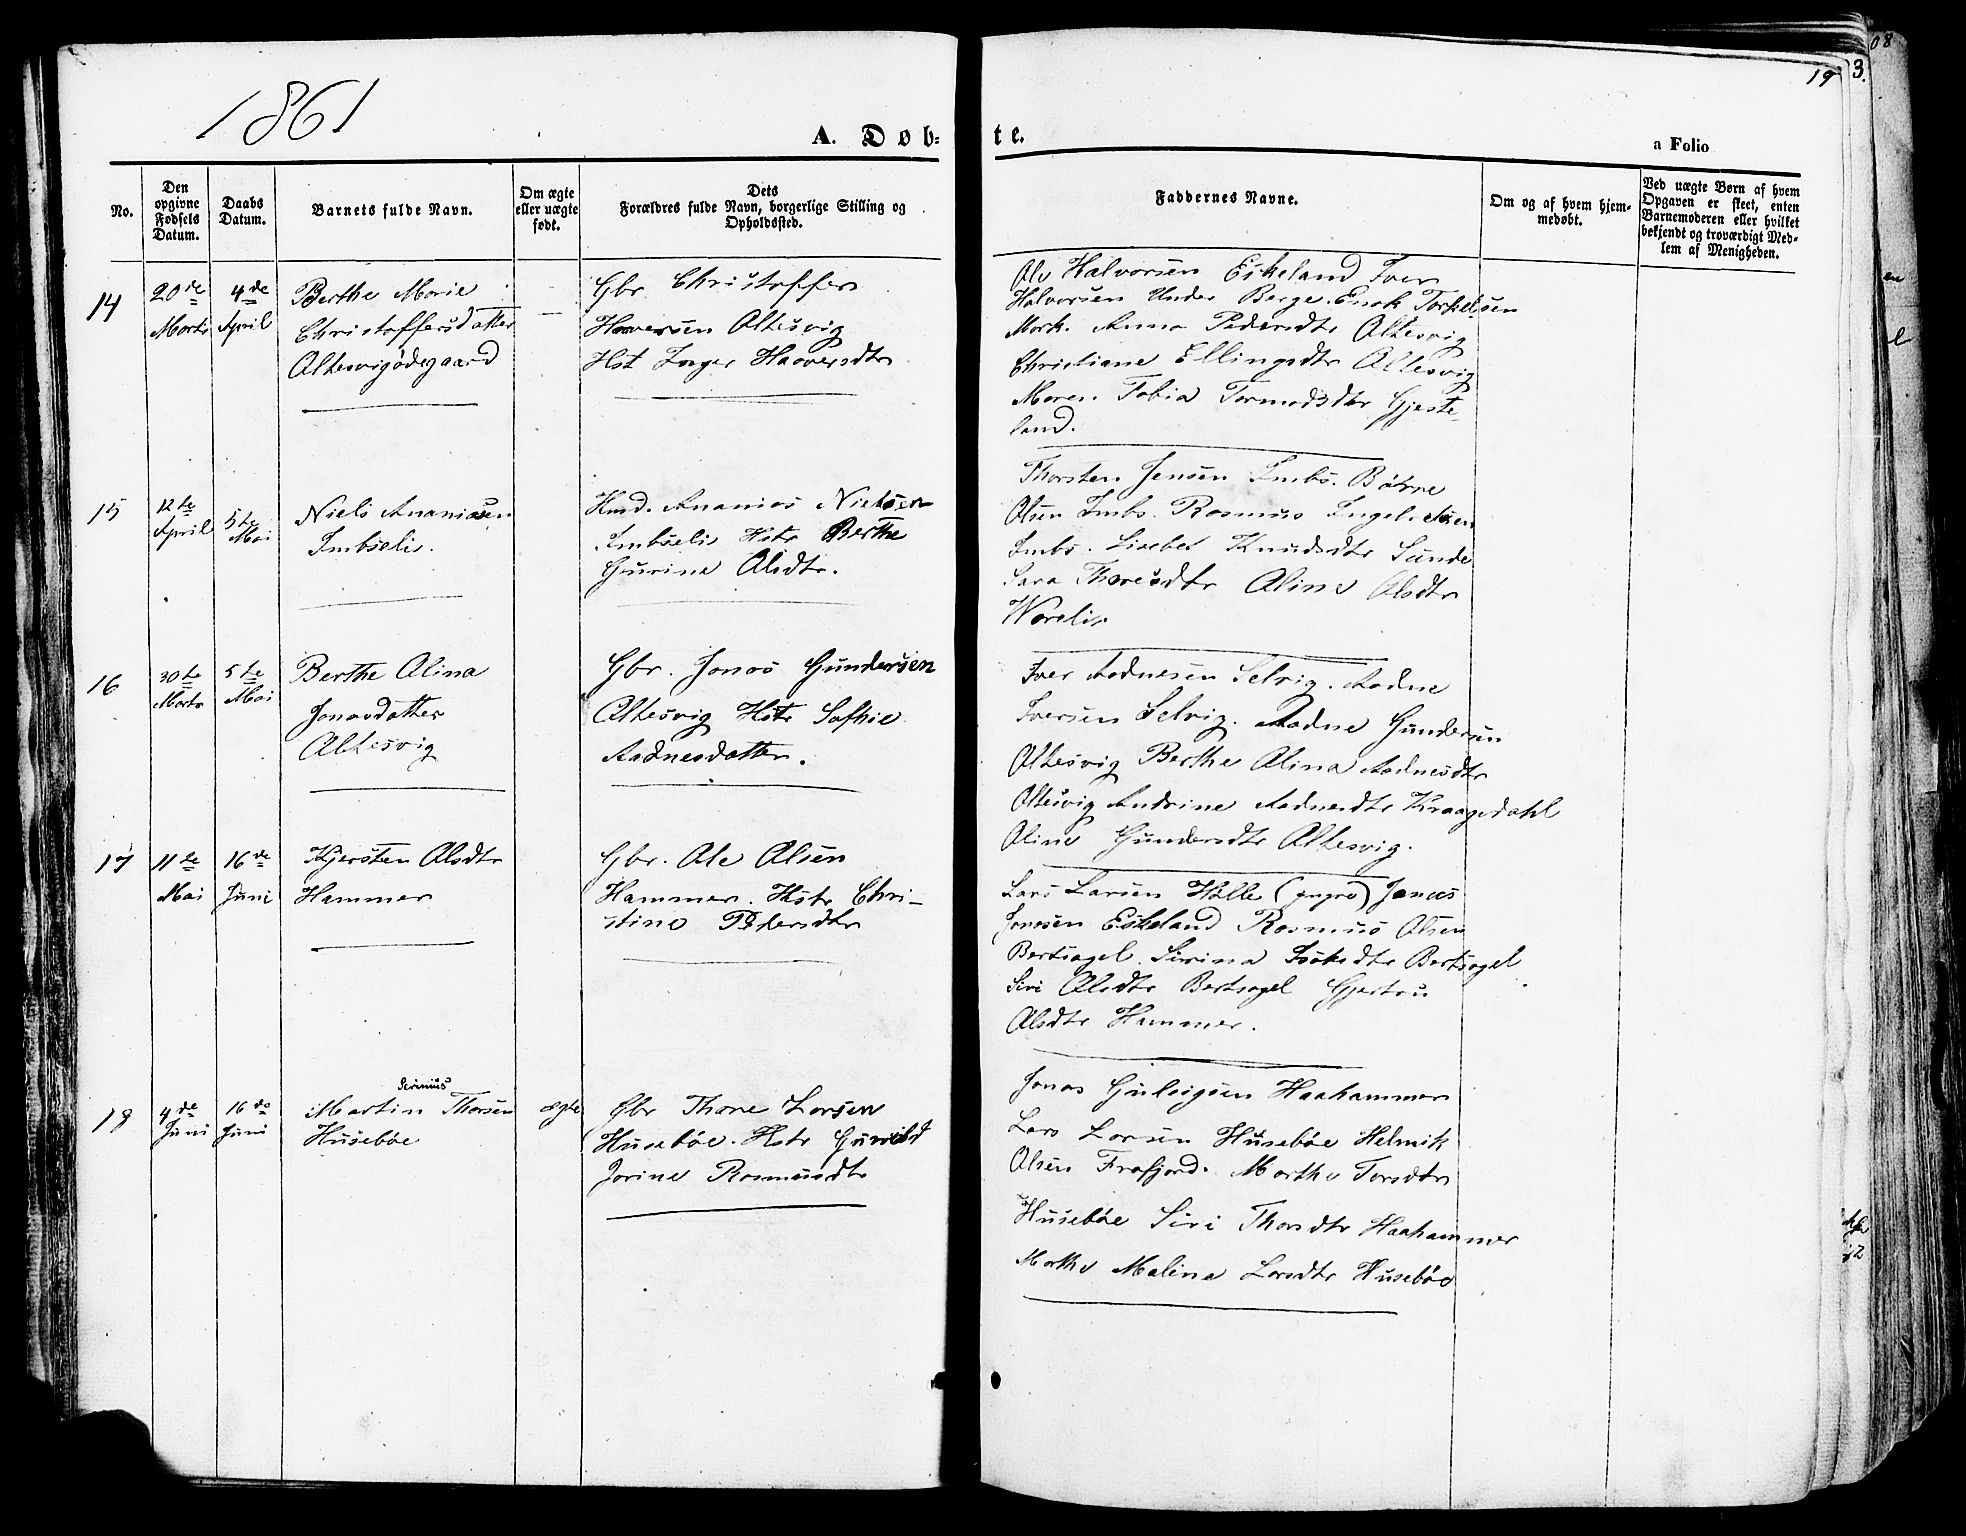 1861
A. Døb=
te.
a Folio
19
3.
08
No.
Den opgivne Fødsels Datum.
Daabs Datum.
Barnets fulde Navn.
Om ægte eller uægte født.
Dets
Forældres fulde Navn, borgerlige Stilling og
Opholdssted.
Faddernes Navne.
Om og af hvem hjem-
medøbt.
Ved uægte Børn af hvem
Opgaven er skeet, enten
Barnemoderen eller hvilket
bekjendt og troværdigt Med-
lem af Menigheden.
14
20de
Marts
4de
April
Berthe Marie
Christoffersdatter
Altesvigødegaard
Gbr. Christoffer
Haaversen Altesvig
Hst Inger Haaversdtr
Ole Halvorsen Eikeland Iver
Halvorsen Under Berge. Enok Torkelsen
Mork. Anna Pedersdtr Altesvig
Christiane Ellingsdtr Altesvig
Maren Tobia Tormodsdtr Gjeste-
land.
15
12te
April
5te
Mai
Niels Ananiasen
Imbselie.
Hmd. Ananias Nielsen
Imbselie Hstr Berthe
Gurine Olsdtr.
Thorsten Jensen Imbs. Børne
Olsen Imbs. Rasmus Ingel.
Imbs. Lisebet Knudsdtr Sunde
Sara Thoresdtr Oline Olsdtr
Worelie
16
30te
Marts
5te
Mai
Berthe Olina
Jonasdatter
Altesvig
Gbr. Jonas Gundersen
Altesvig Hstr Sofhie
Aadnesdatter.
Iver Aadnesen Selvig. Aadne
Iversen Selvig. Aadne Gundersen
Altesvig Berthe Olina Aadnesdtr
Altesvig Andrine Aadnesdtr Kraagedahl
Oline Gundersdtr Altesvig.
17
11te
Mai
16de
Juni
Kjersten Olsdtr
Hammer
Gbr. Ole Olsen
Hammer. Hstr Chri-
stine Pedersdtr
Lars Larsen Hølle (yngre) Jonas
Jonasen Eikeland Rasmus Olsen
Bertsagel. Sirina Isaksdtr Bertsagel
Siri Olsdtr Bertsagel Gjertru
Olsdtr Hammer.
18
4de
Juni
16de
Juni
Serinius
Martin Thorsen
Husebøe
ægte
Gbr Thore Larsen
Husebøe. Hstr Gunild
Jorine Rasmusdtr
Jonas Guleigsen Haahammer
Lars Larsen Husebøe Helmik
Olsen Frafjord. Marthe Torsdtr
Husebøe Siri Thorsdtr Haahammer
Marthe Malina Larsdtr Husebøe